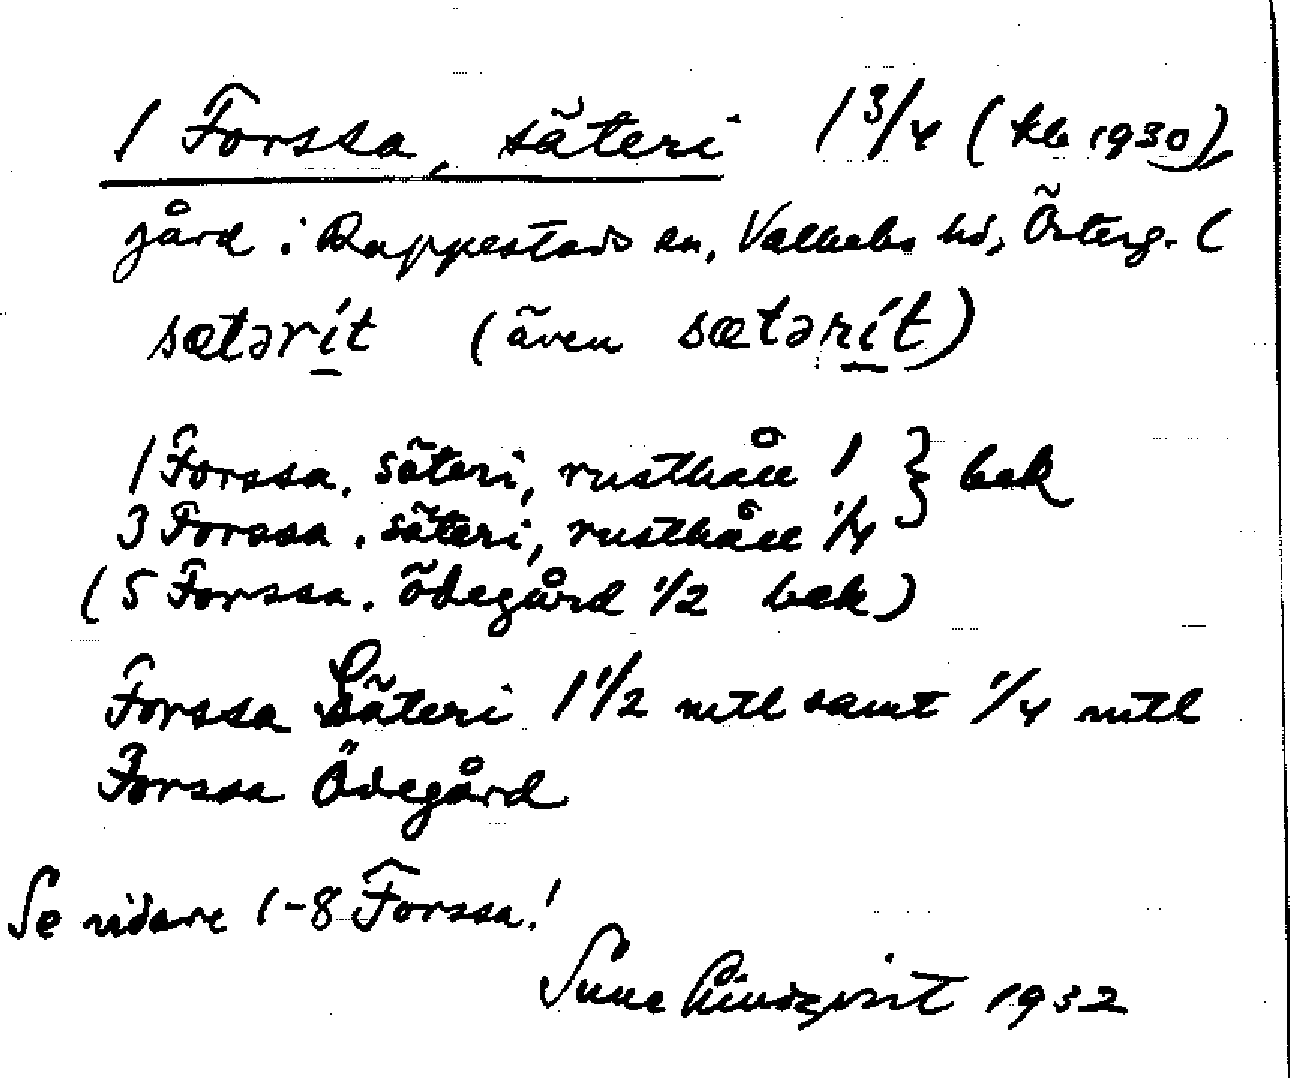 1 Forssa, säteri 1 3/4 (kb 1930),
gård i Rappestads sn, Valkebo hd, Österg. (
sætərít (även sætərít)
1 Forssa, säteri, rusthåll 1 } bek
3 Forssa, säteri, rusthåll 1/4
(5 Forssa. ödegård 1/2 bek)
Forssa Säteri 1 1/2 mtl samt 1/4 mtl
Forssa Ödegård
Se vidare 1-8 Forssa!
Sune Lindqvist 1932